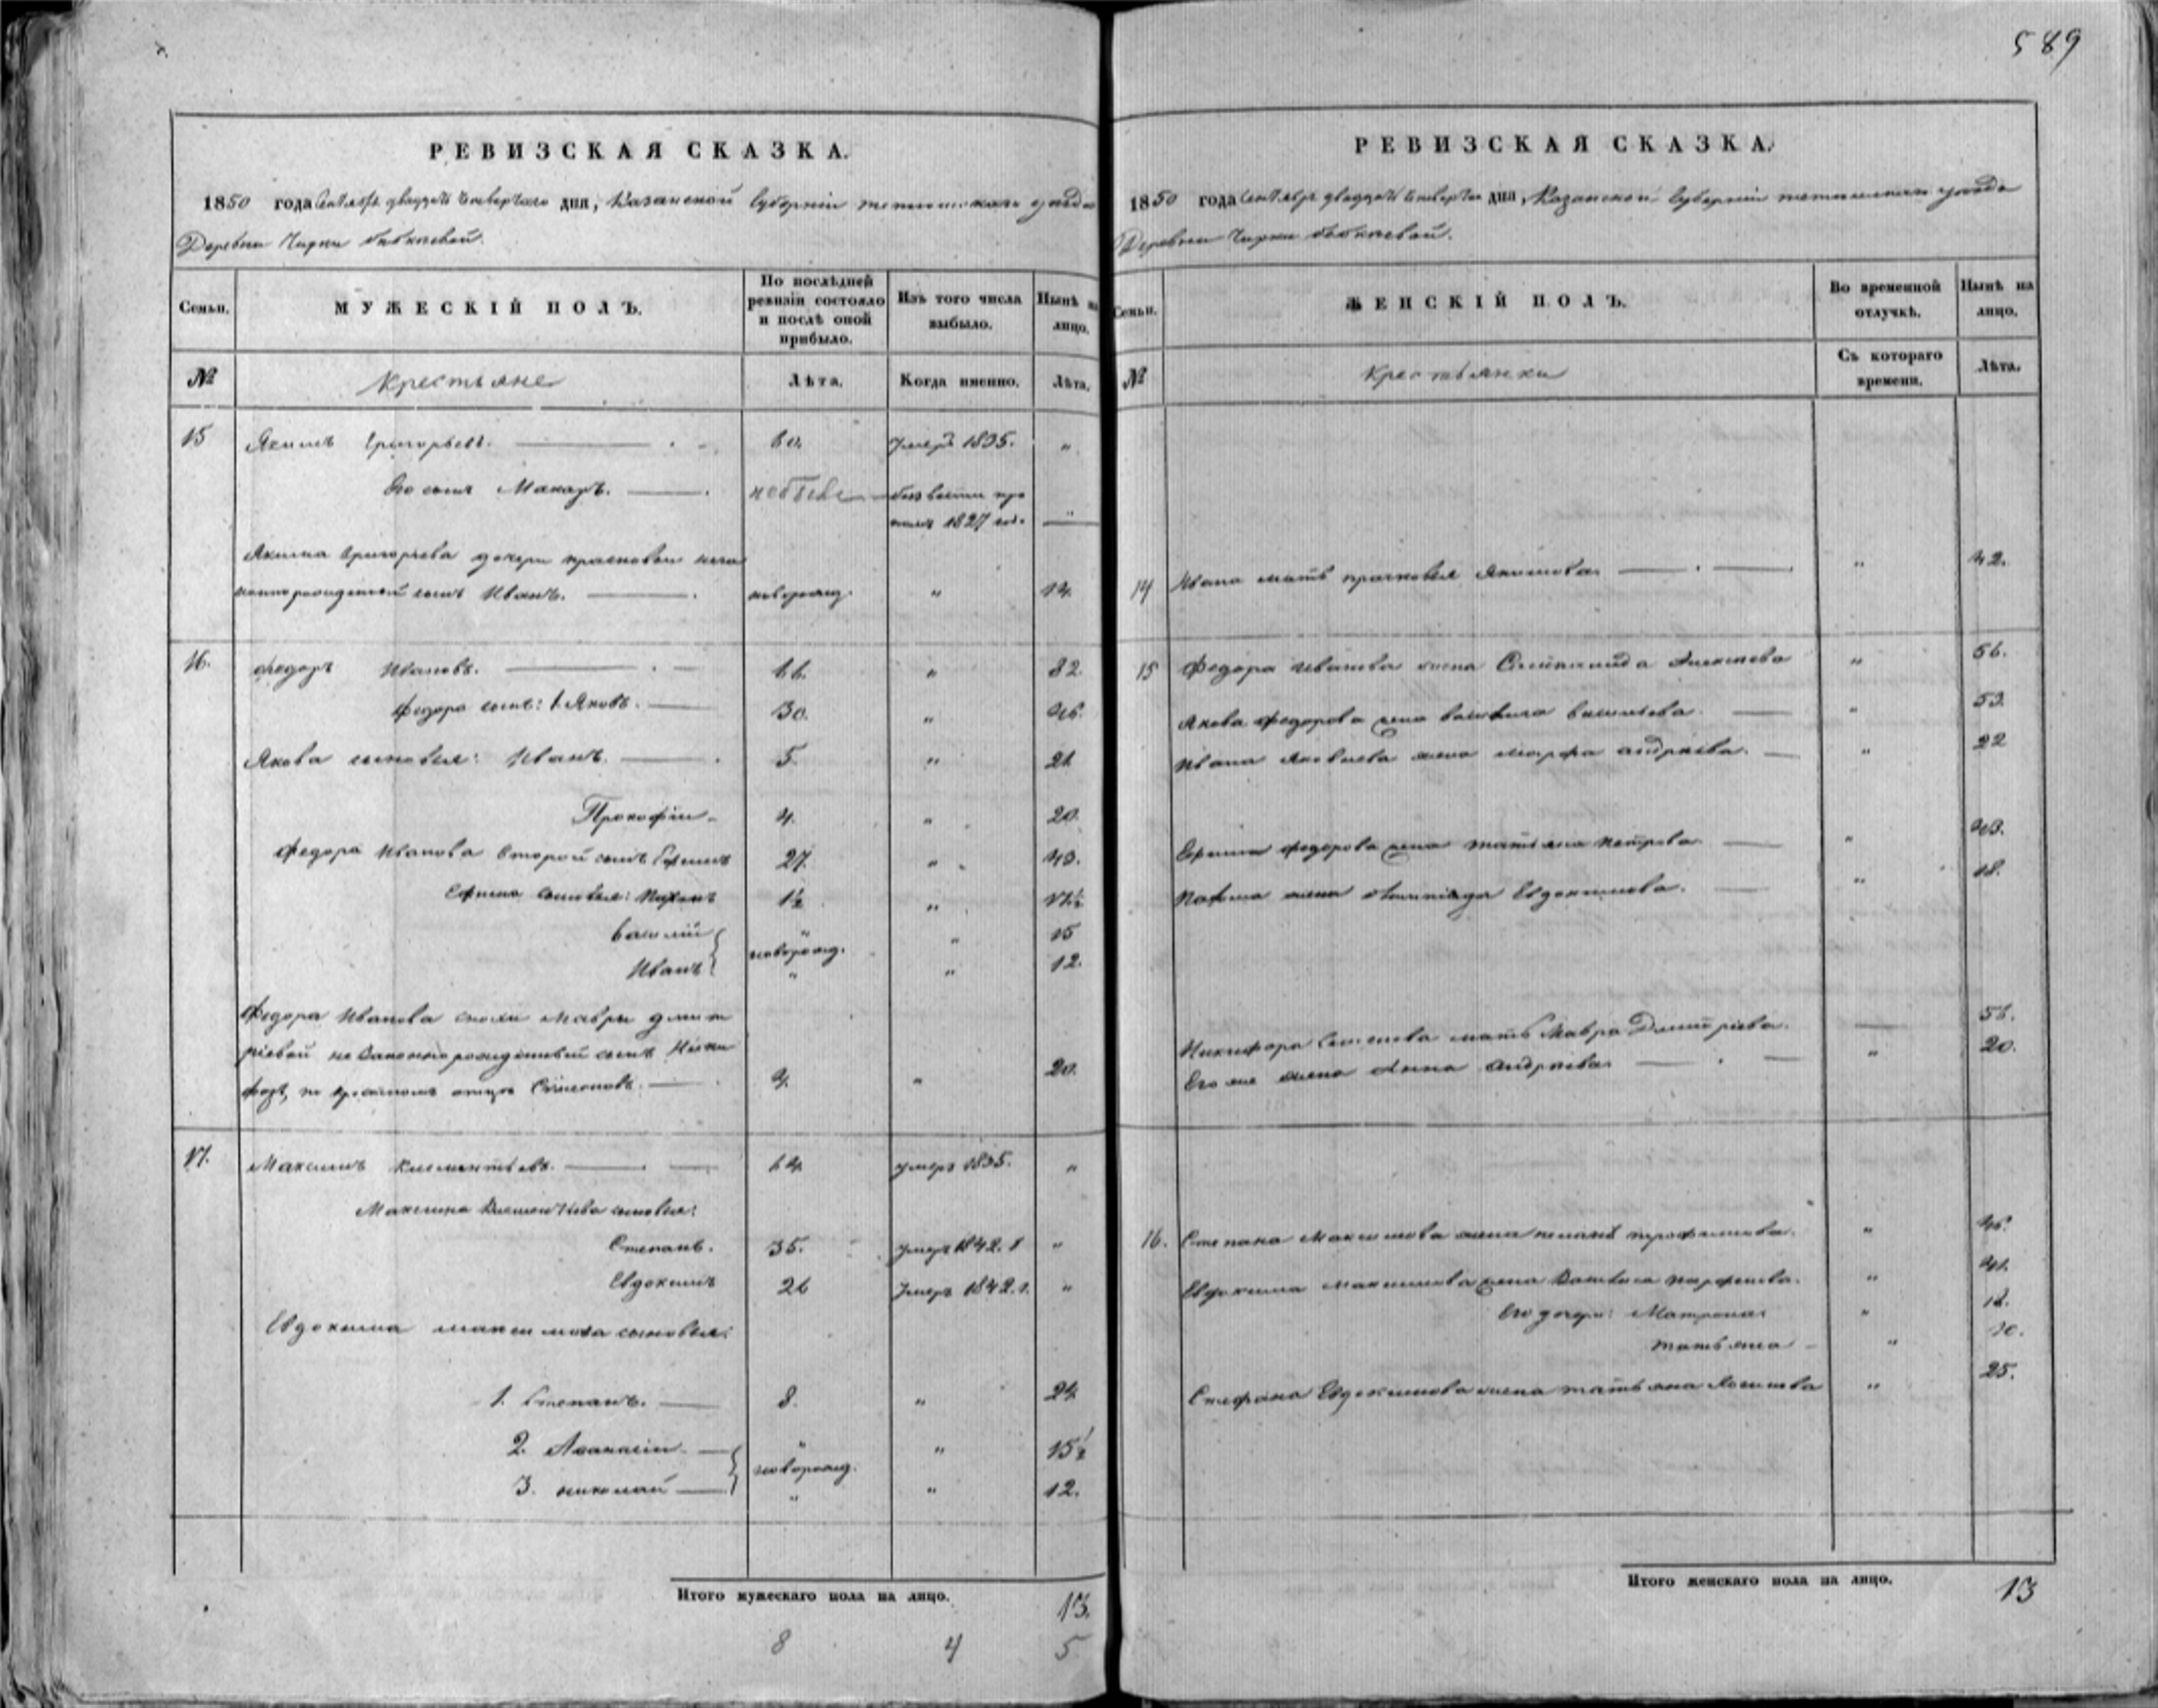 589
РЕВИЗСКАЯ СКАЗКА.
1850 года Сентября двадцать четвертаго дня, Казанской Губерніи тетюшскаго уѣзда
Деревни Чирки
Семьи.
МУЖЕСКІЙ ПОЛЪ.
По послѣдней ревизіи состояло и послѣ оной прибыло.
Изъ того числа выбыло.
Нынѣ на лицо.
№
Крестьяне
Лѣта.
Когда именно.
Лѣта.
15 Якимъ Григорьевъ. 60. умеръ 1835. „
Его сынъ Макаръ. безъ вѣсти про
1827 „
Якима Григорьева дочери незо
рожденный сынъ Иванъ. новорожд. „ 14.
16. Федоръ Ивановъ. 66. „ 82.
Федора сынъ: 1. Яковъ. 30. „ 46.
Якова сыновья: Иванъ. 5 „ 21
Прокофій 4. „ 20.
Федора Иванова второй сынъ Ефимъ 27. „ 43.
Ефима сыновья: 1½ „ 17½
Василій „ „ 15
новорожд.
Иванъ „ „ 12.
Федора Иванова снохи Мавры Дмит
ріевой не законнорожденный сынъ Ники
форъ, по крестномъ отцѣ Семеновъ. 4. „ 20.
17. Максимъ Клементьевъ. 64. умеръ 1835. „
Максима Клементьева сыновья:
Степанъ. 35. умеръ 1842. г „
Евдокимъ 26 умеръ 1842. г. „
Евдокима максимова сыновья:
1. Степанъ. 8. „ 24
2. Афанасій „ „ 15½
новорожд.
3. николай „ „ 12.
Итого мужескаго пола на лицо. 13.
8 4 5
РЕВИЗСКАЯ СКАЗКА.
1850 года Сентября двадцать четвертаго дня, Казанской Губерніи тетюшскаго уѣзда
Деревни Чирки
Семьи.
ЖЕНСКІЙ ПОЛЪ.
Во временной отлучкѣ.
Нынѣ на лицо.
№
Крестьянки
Съ котораго времени.
Лѣта.
14 Ивана мать Якимова „ 42.
15 Федора Иванова жена Степанида Алексѣева „ 56.
Якова Федорова жена Василиса Васильева. „ 53.
Ивана Яковлева жена марфа андрѣева. „ 22
Ефима федорова жена татьяна петрова. „ 43.
жена Евдокимова. „ 18.
Никифора Семенова мать Мавра Дмитріева. 56.
Его же жена Анна Андрѣева. „ 20.
16. Степана Максимова жена трофимова. „ 46.
Евдокима максимова жена Василиса парфенова. „ 41.
Его дочери: Матрона „ 18.
татьяна „ 10.
Стефана Евдокимова жена татьяна „ 25.
Итого женскаго пола на лицо. 13